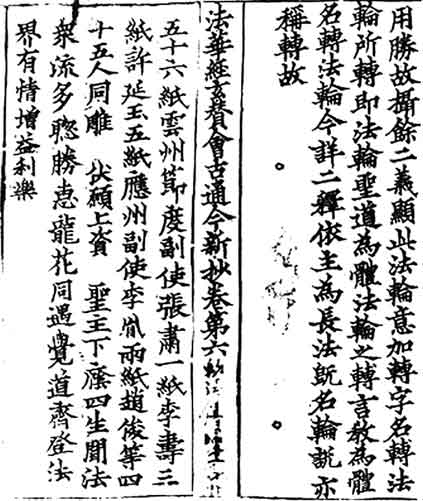 用勝故攝餘二義顯此法輪意加轉字名轉法
輪所轉即法輪聖道為體法輪之轉言教為體
名轉法輪今詳二釋依主為長法既名輪説亦
稱轉故
法華經玄賛會古通今新抄卷第六
五十六紙雲州節度副使張肅一紙李壽三
紙許延玉五紙應州副使李胤兩紙趙俊等四
十五人同雕 伏願上資 聖王下癊四生聞法
衆流多聡勝惠龍花同遇覺道齊登法
界有情增益利樂